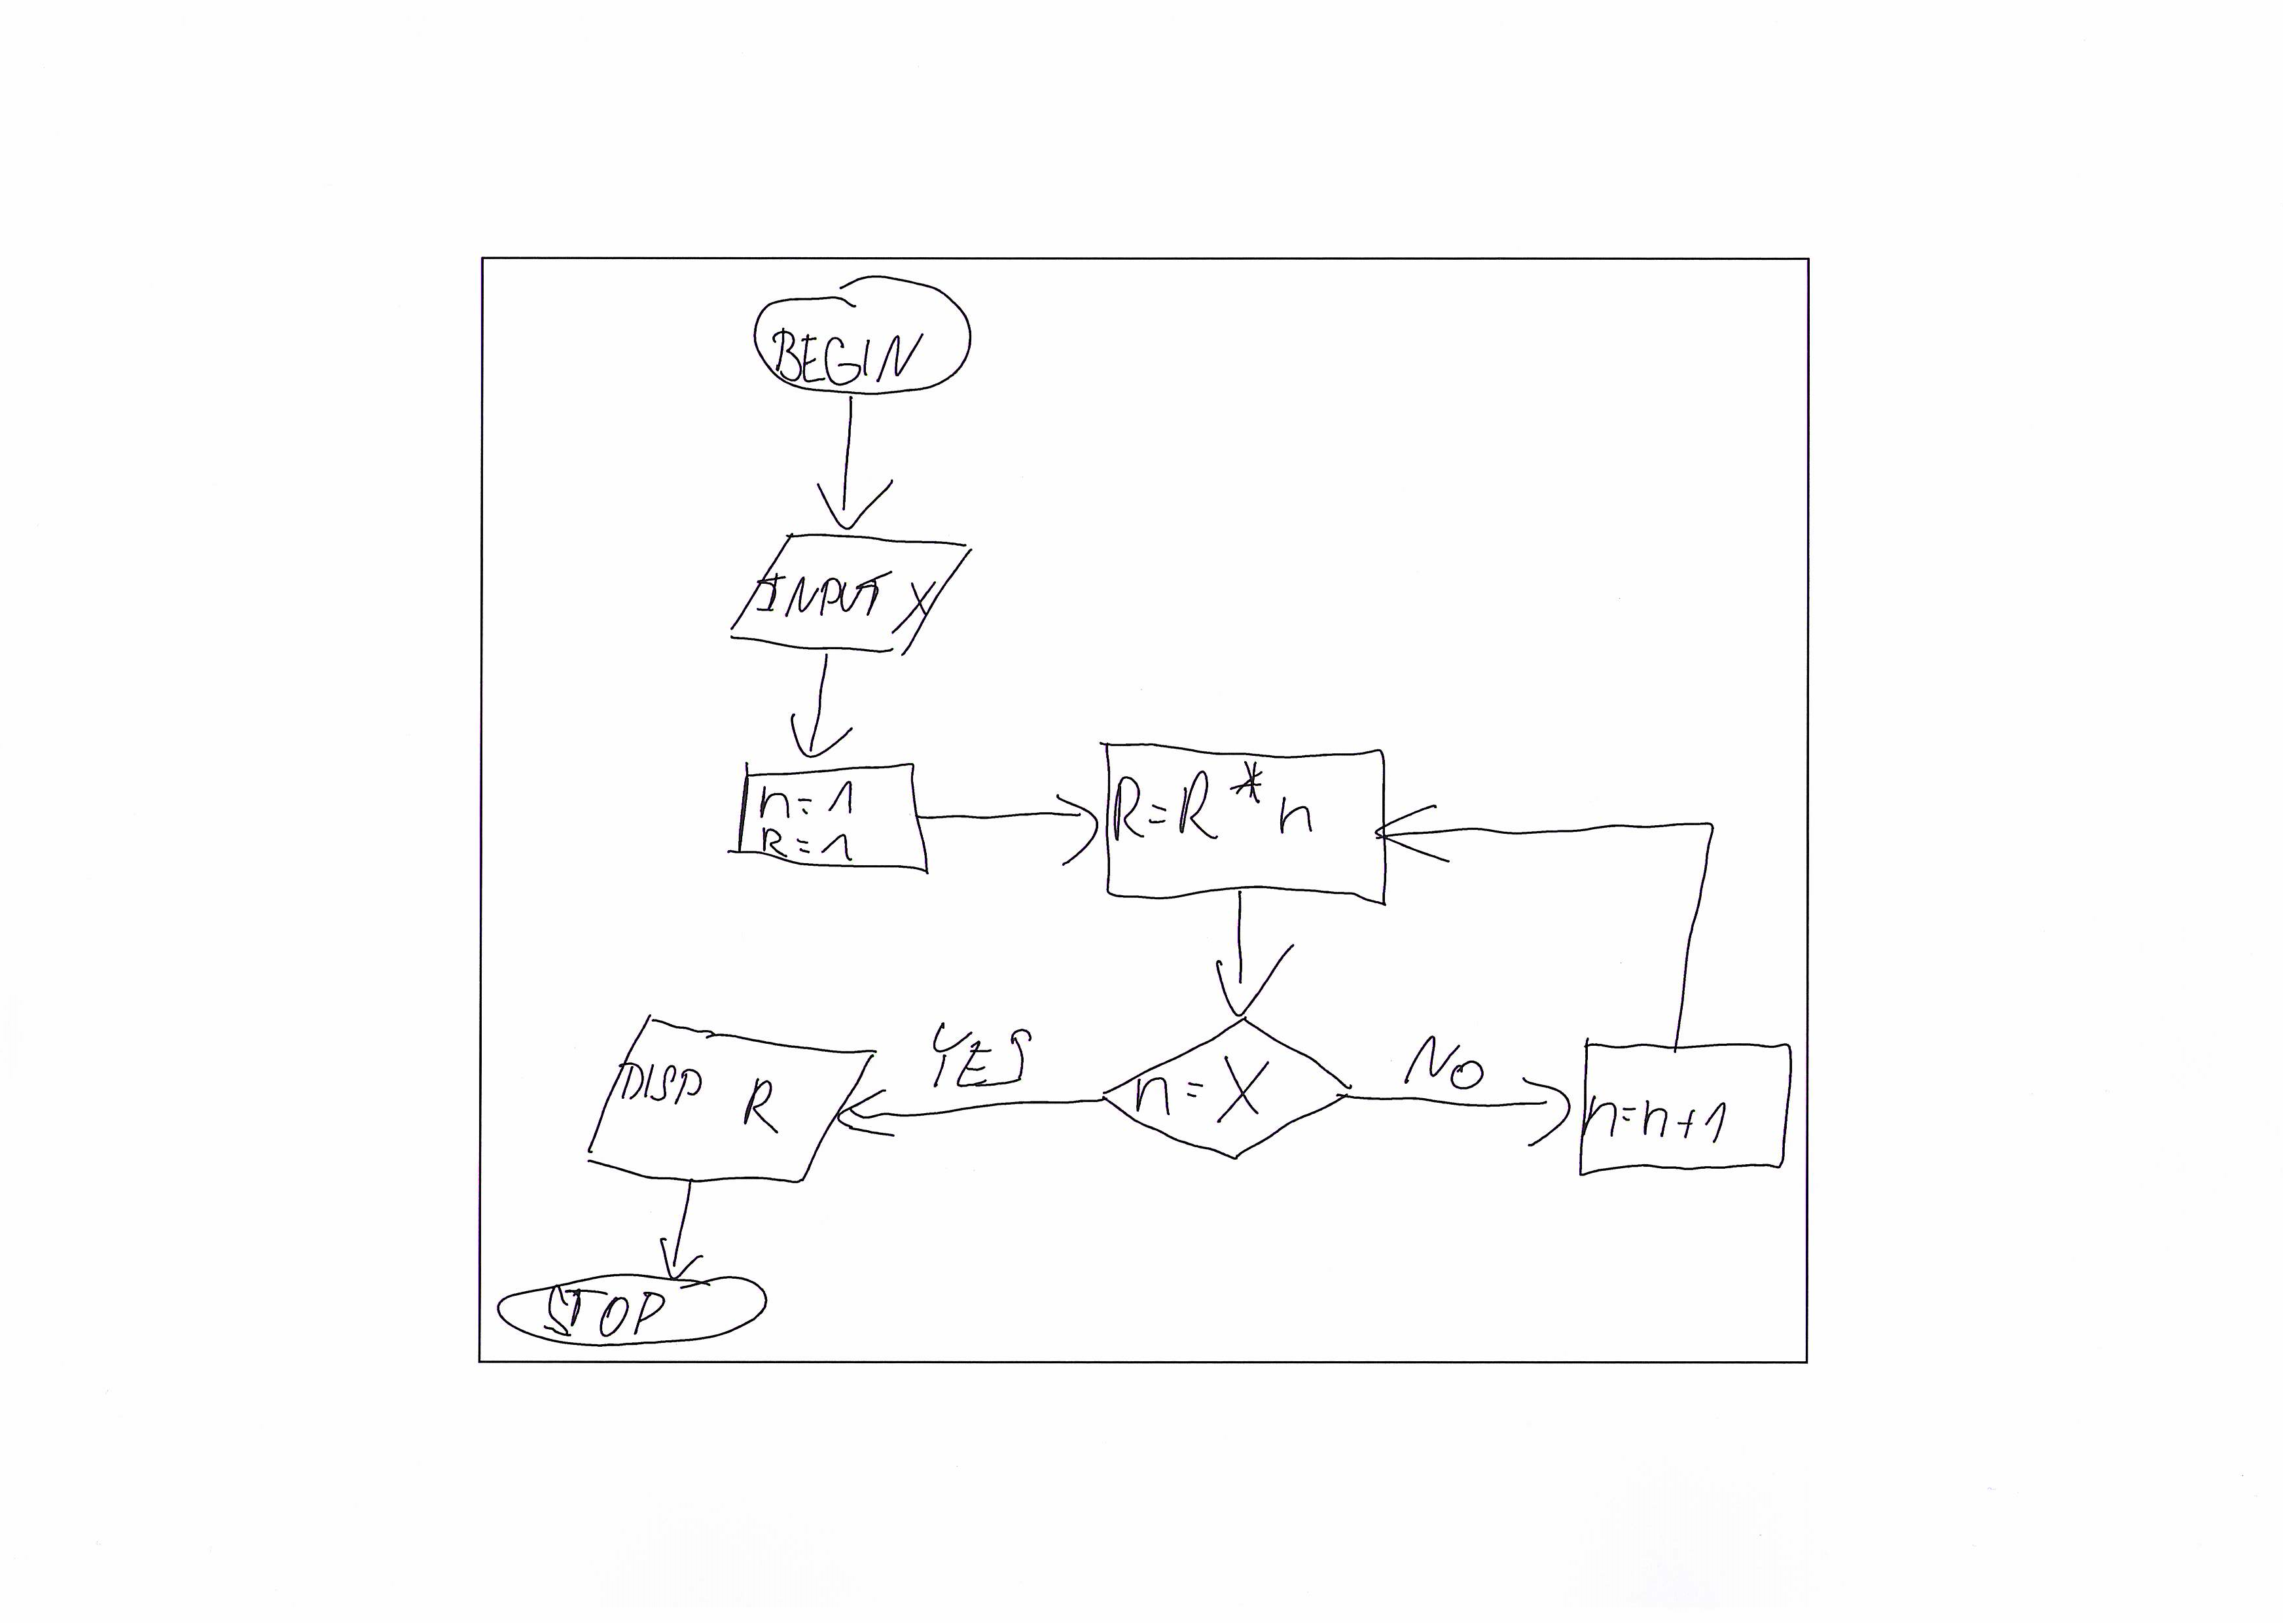 BEGIN
INPUT X
n=1
R=1
R=R*n
n=X
YES
NO
DISP R
n=n+1
STOP